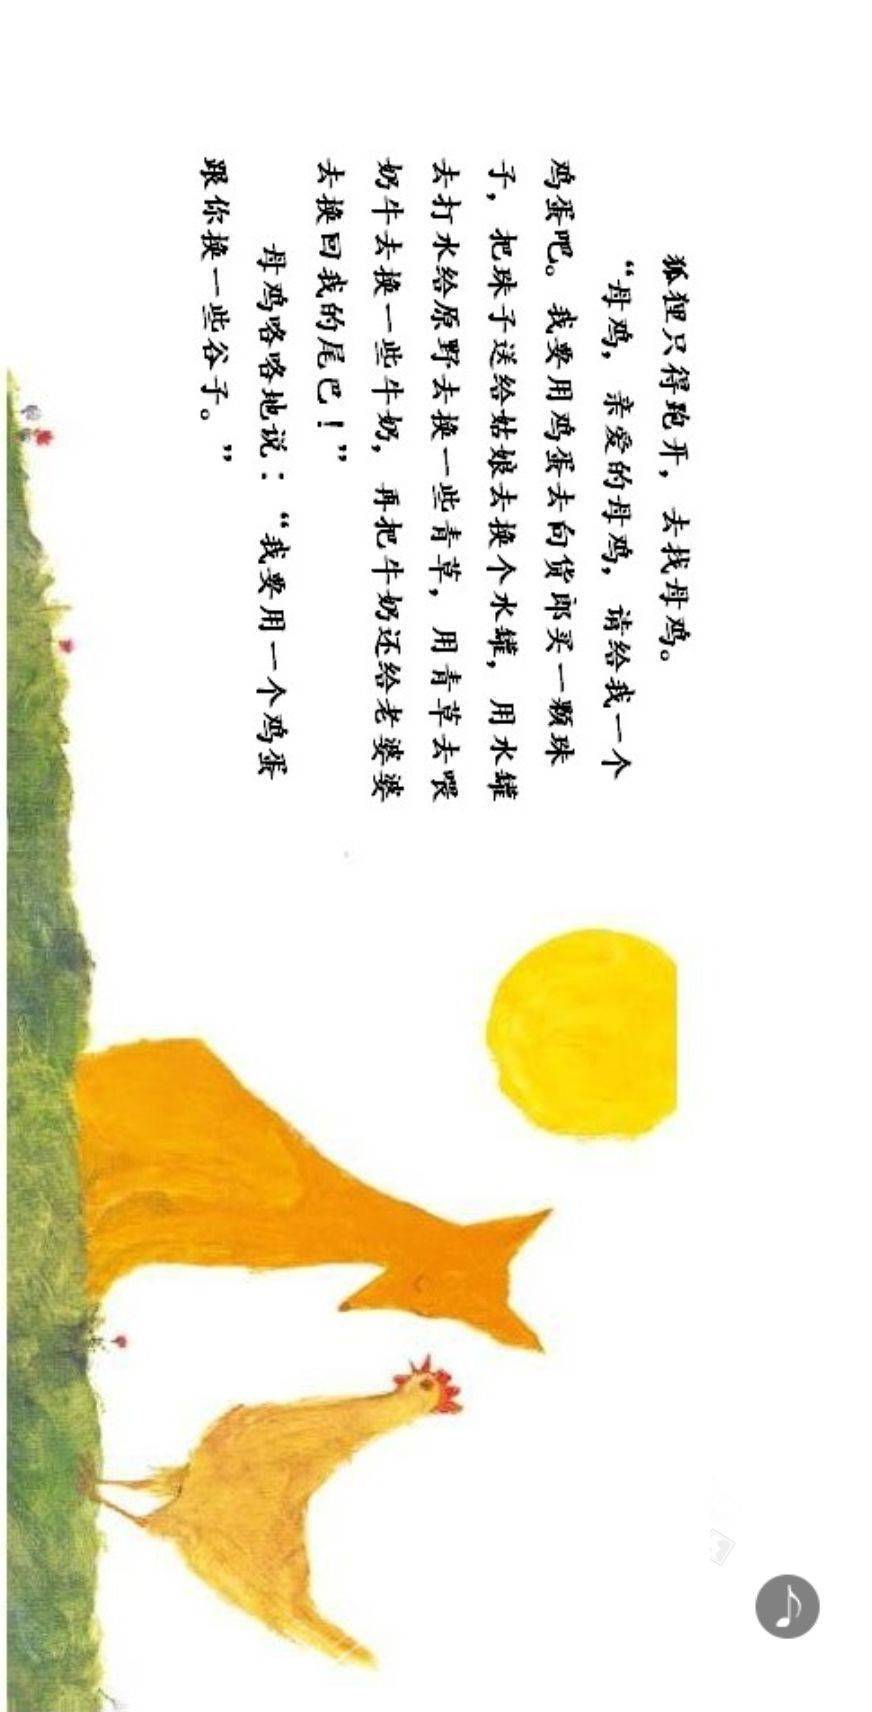 狐狸只得跑开，去找母鸡。
“母鸡，亲爱的母鸡，请给我一个
鸡蛋吧。我要用鸡蛋去向货郎买一颗珠
子，把珠子送给姑娘去换个水罐，用水罐
去打水给原野去换一些青草，用青草去喂
奶牛去换一些牛奶，再把牛奶还给老婆婆
去换回我的尾巴！”
母鸡咯咯地说：“我要用一个鸡蛋
跟你换一些谷子。”